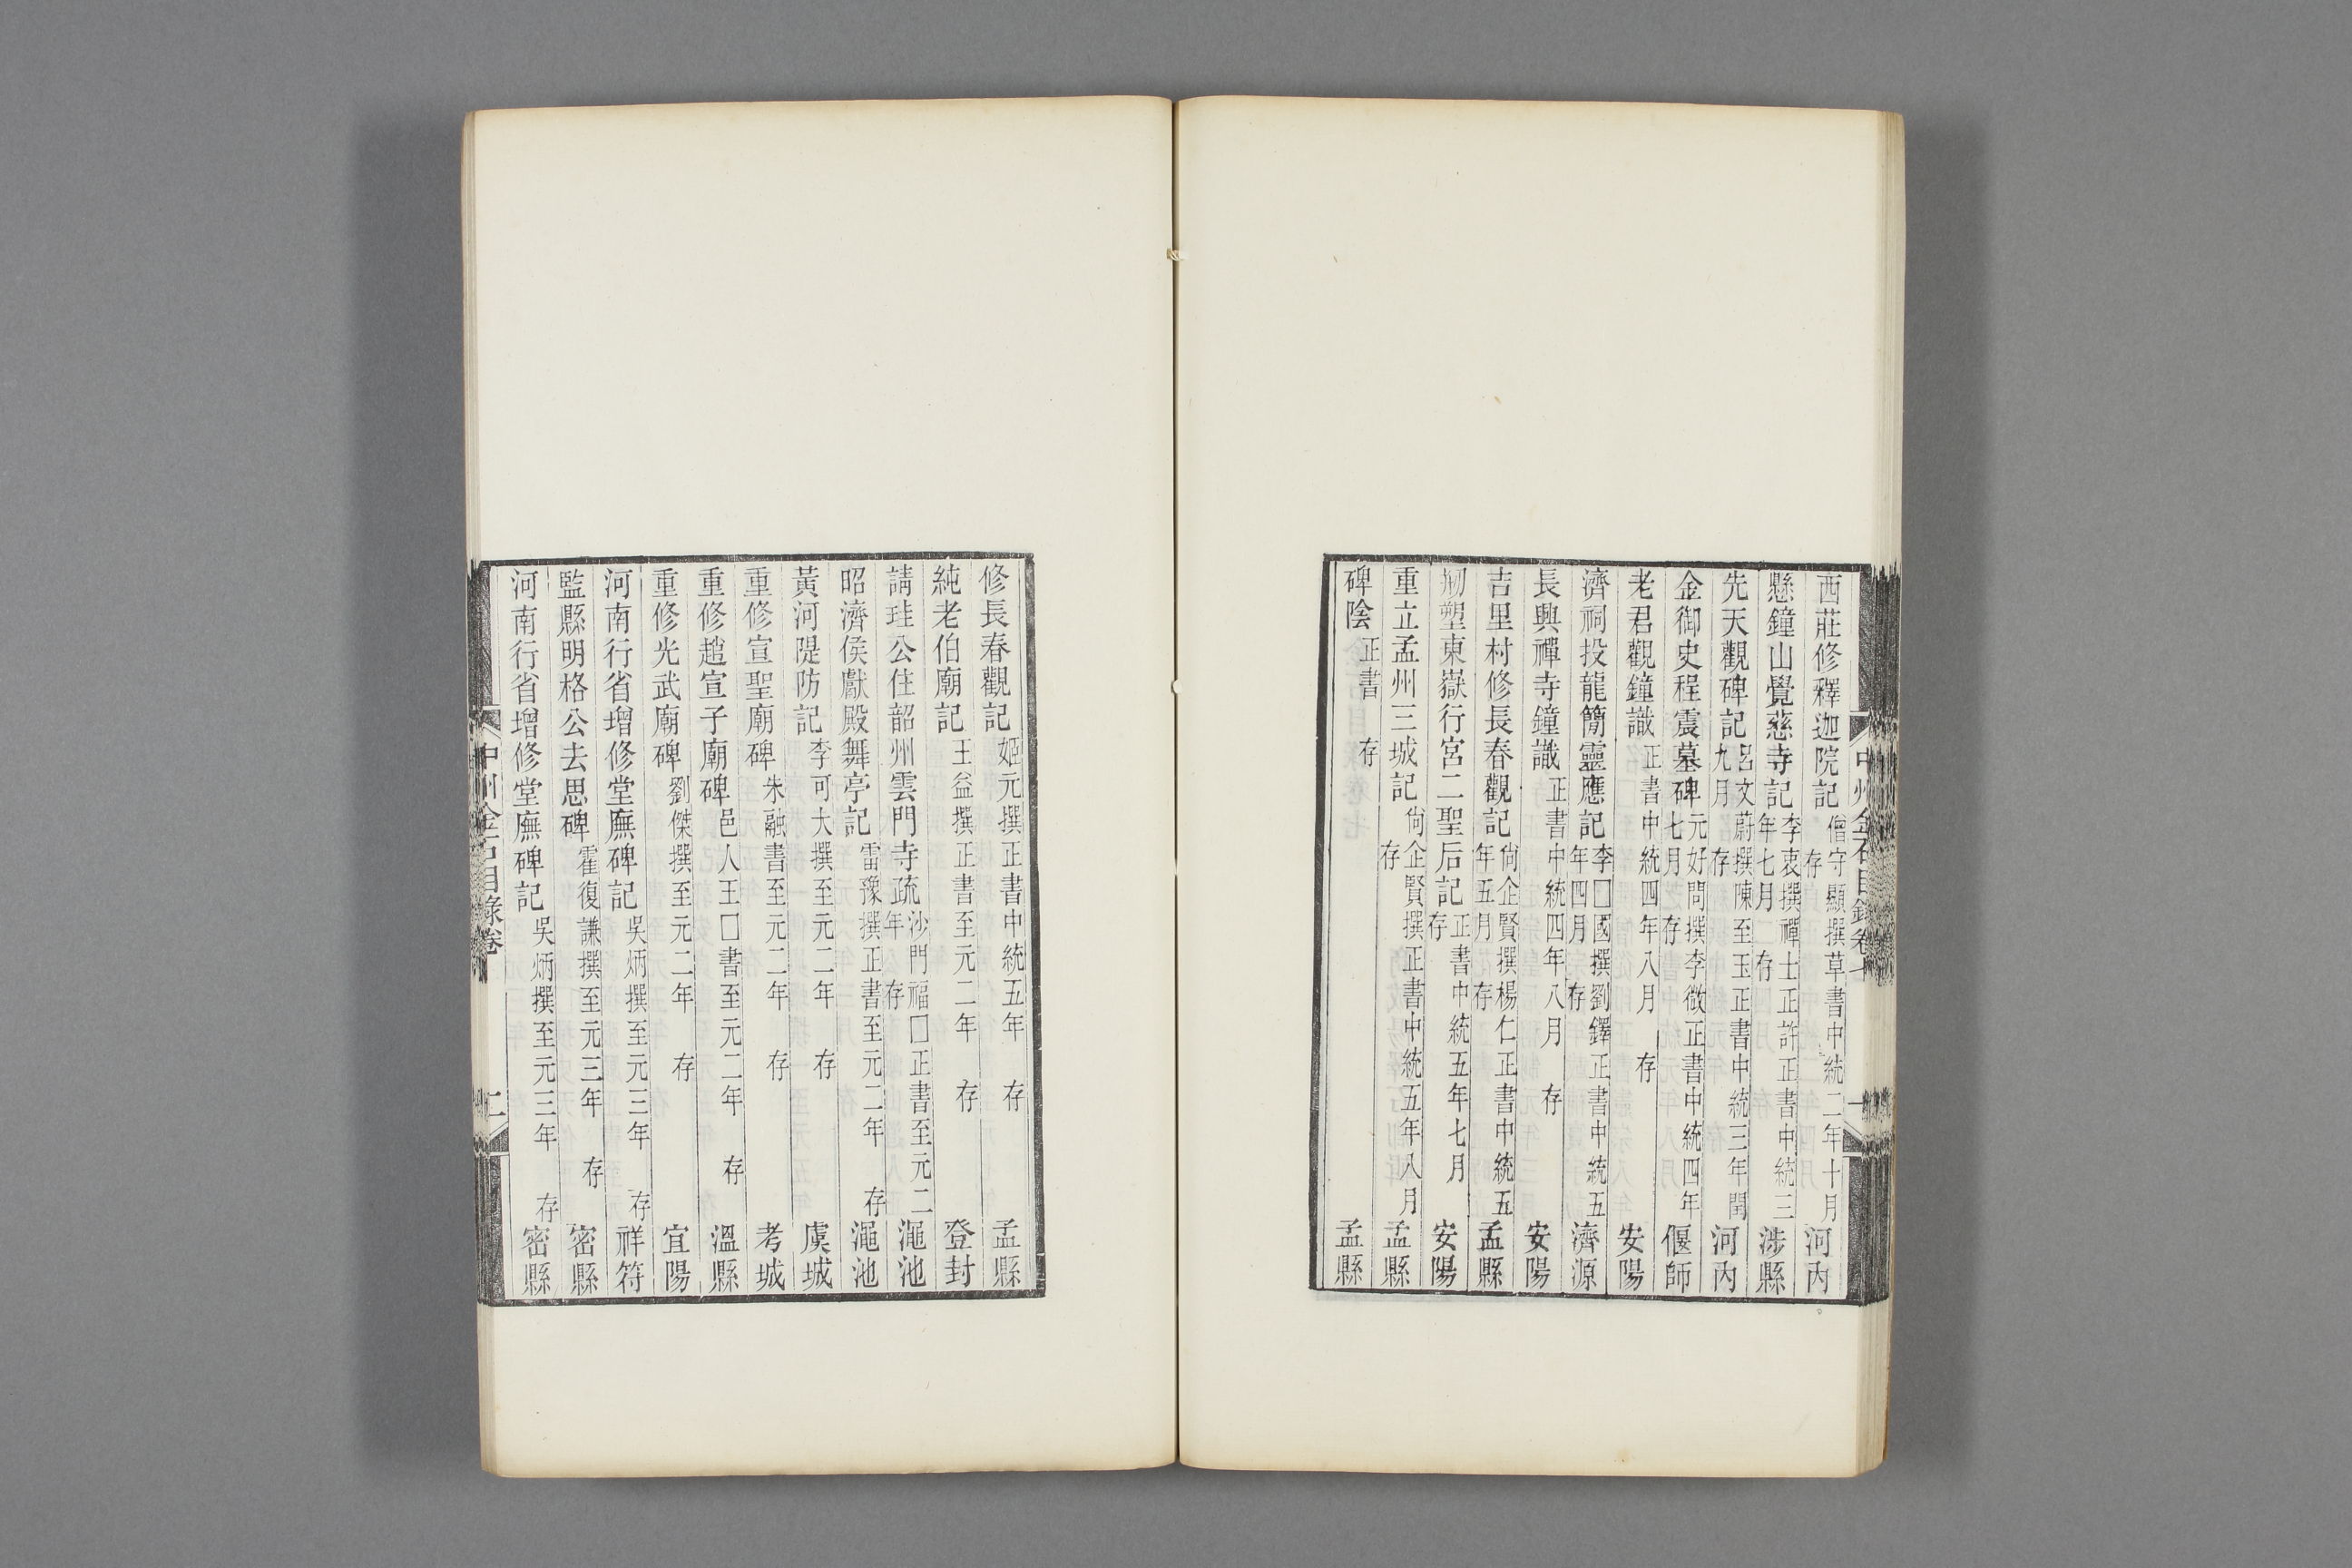 西莊修釋迦院記 僧守顯撰草書中統二年十月 存 河內
懸鐘山覺慈寺記 李衷撰禪士正許正書中統三年七月 存 涉縣
先天觀碑記 呂文蔚撰陳至玉正書中統三年閏九月 存 河內
金御史程震墓碑 元好問撰李微正書中統四年七月 存 偃師
老君觀鐘識 正書中統四年八月 存 安陽
濟祠投龍簡靈應記 李□國撰劉鐸正書中統五年四月 存 濟源
長興禪寺鐘識 正書中統四年八月 存 安陽
吉里村修長春觀記 尙企賢撰楊仁正書中統五年五月 存 孟縣
剏塑東嶽行宮二聖后記 正書中統五年七月 存 安陽
重立孟州三城記 尙企賢撰正書中統五年八月 存 孟縣
碑陰 正書 存 孟縣
中州金石目錄卷七
修長春觀記 姬元撰正書中統五年 存 孟縣
純老伯廟記 王益撰正書至元二年 存 登封
請珪公住韶州雲門寺疏 沙門福□正書至元二年 存 澠池
昭濟侯獻殿舞亭記 雷豫撰正書至元二年 存 澠池
黃河隄防記 李可大撰至元二年 存 虞城
重修宣聖廟碑 朱融書至元二年 存 考城
重修趙宣子廟碑 邑人王□書至元二年 存 溫縣
重修光武廟碑 劉傑撰至元二年 存 宜陽
河南行省增修堂廡碑記 吳炳撰至元三年 存 祥符
監縣明格公去思碑 霍復謙撰至元三年 存 密縣
河南行省增修堂廡碑記 吳炳撰至元三年 存 密縣
中州金石目錄卷 二